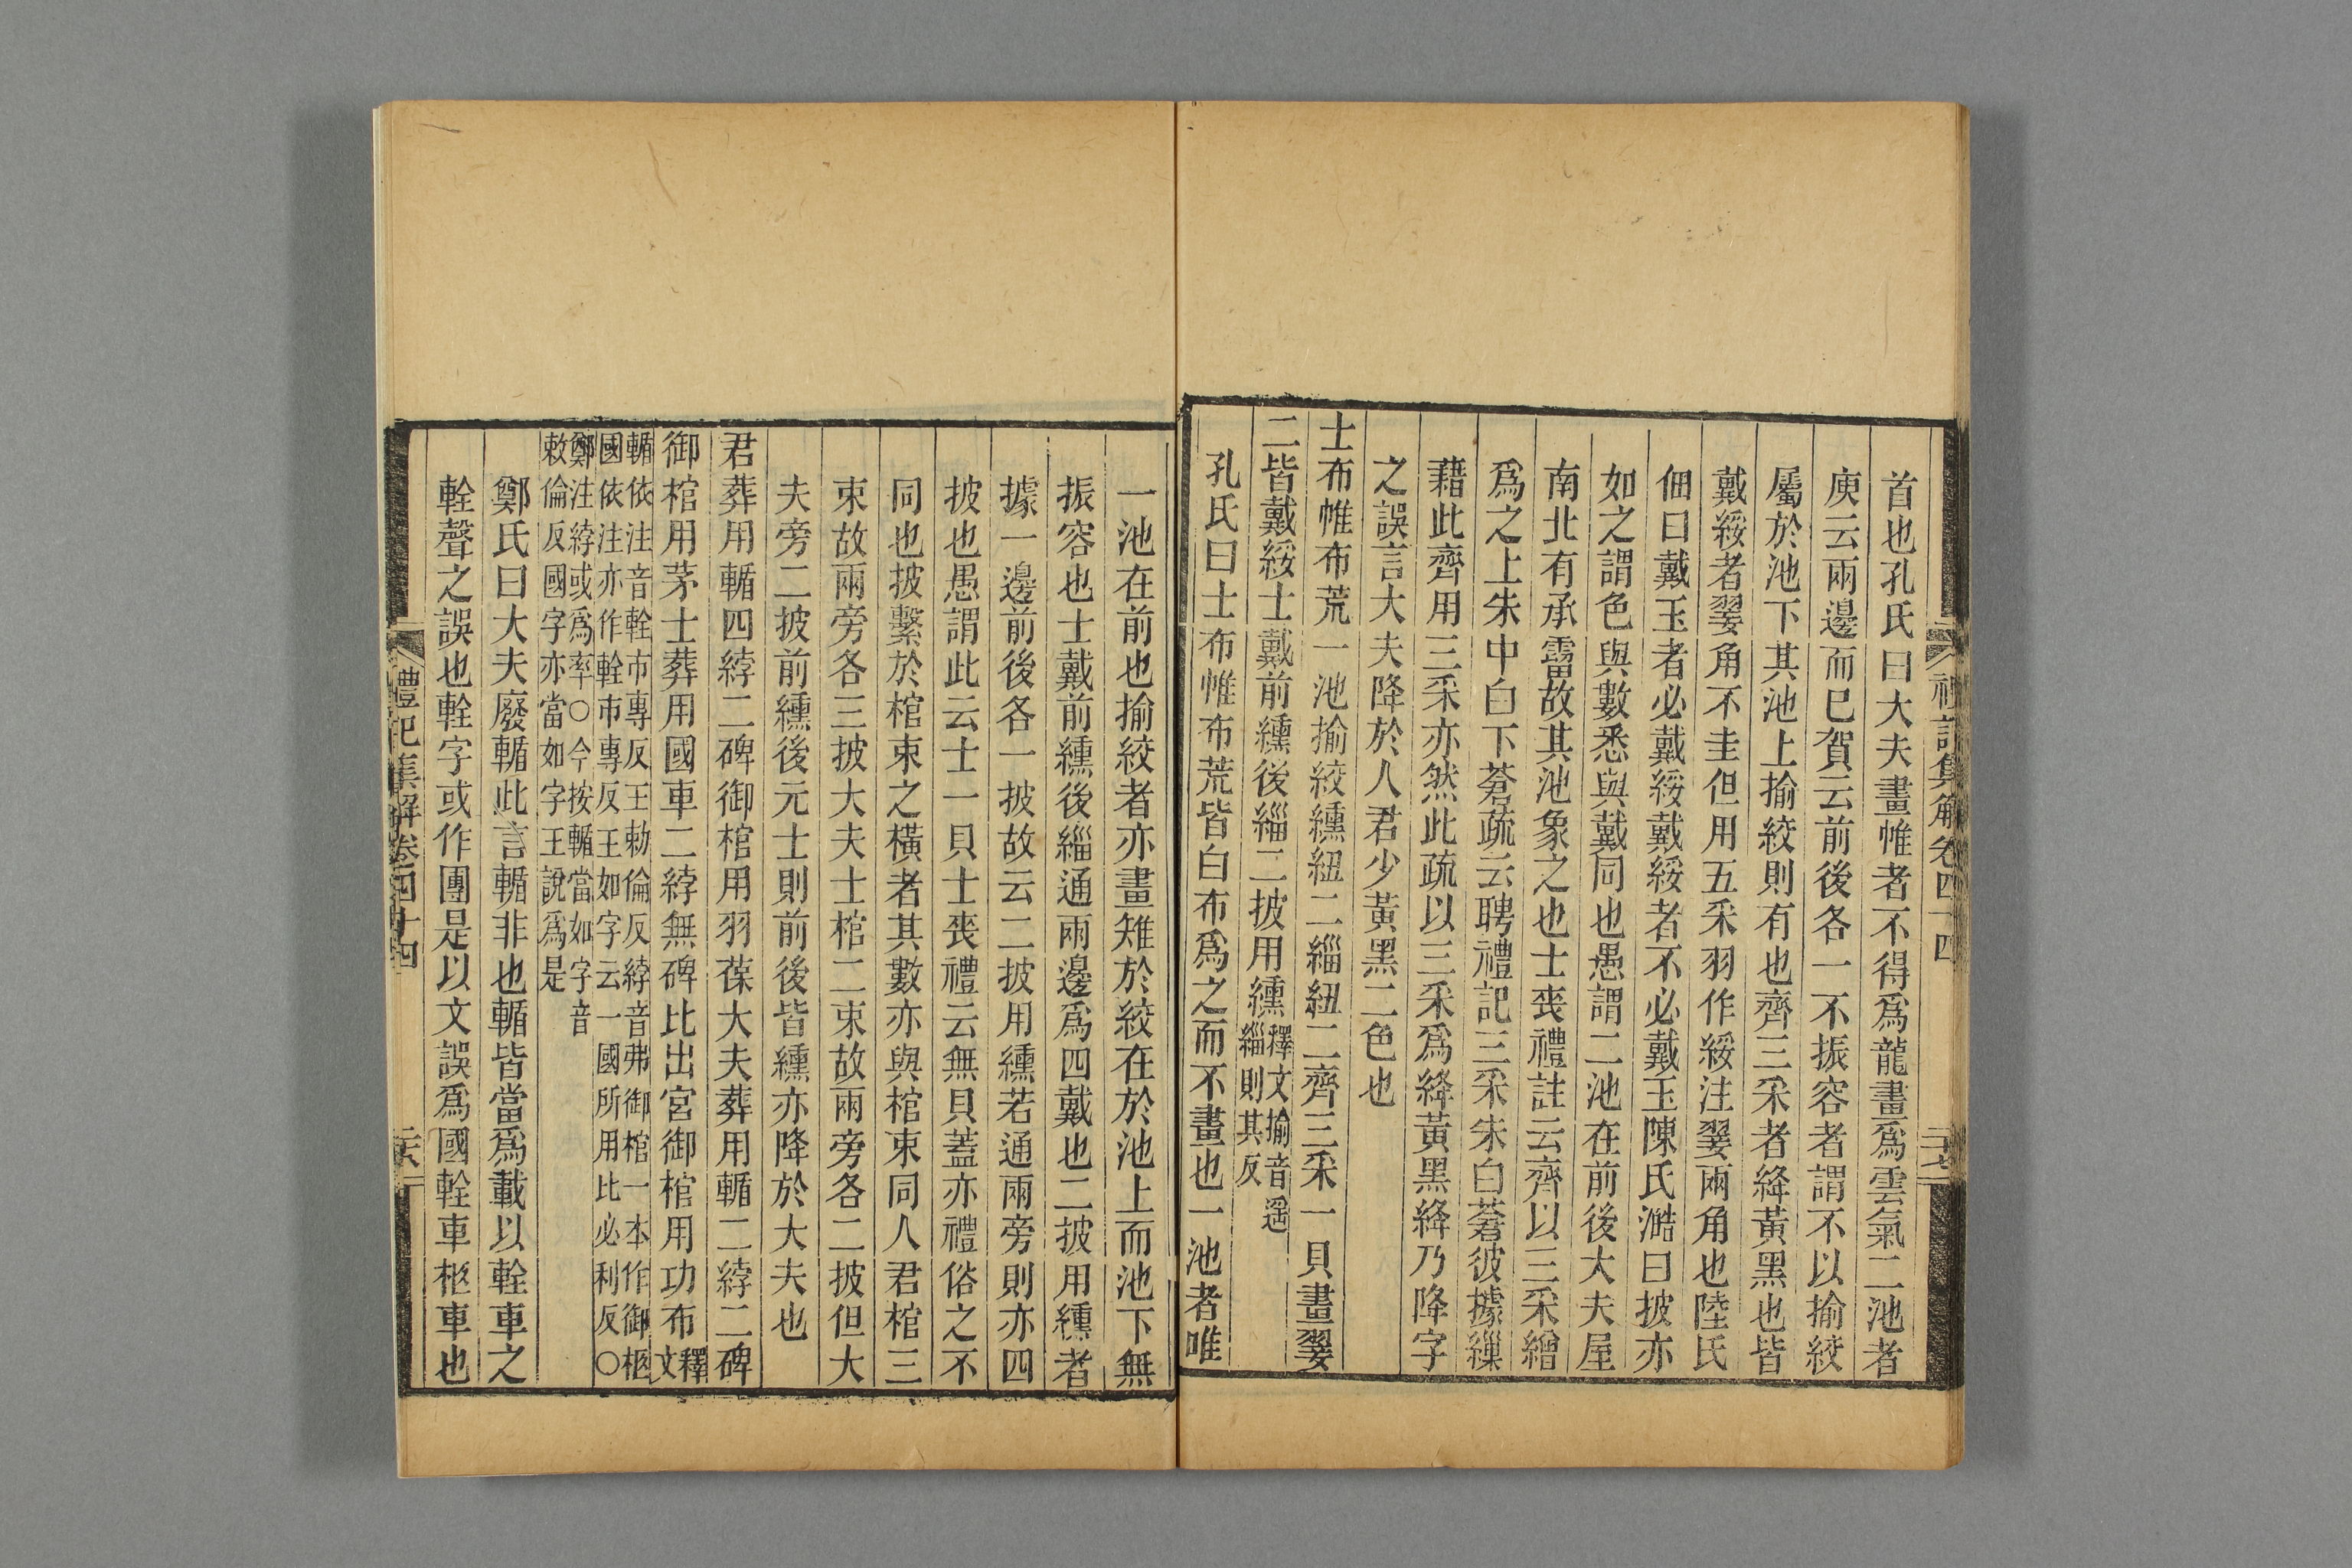 首也孔氏曰大夫畫帷者不得爲龍畫爲雲氣二池者
庾云兩邊而已賀云前後各一不振容者謂不以揄絞
屬於池下其池上揄絞則有也齊三采者絳黃黑也皆
戴綏者翣角不圭但用五采羽作綏注翣兩角也陸氏
佃曰戴玉者必戴綏戴綏者不必戴玉陳氏澔曰披亦
如之謂色與數悉與戴同也愚謂二池在前後大夫屋
南北有承霤故其池象之也士喪禮註云齊以三采繒
爲之上朱中白下蒼疏云聘禮記三采朱白蒼彼據繅
藉此齊用三采亦然此疏以三采爲絳黃黑絳乃降字
之誤言大夫降於人君少黃黑二色也
士布帷布荒一池揄絞纁紐二緇紐二齊三采一貝畫翣
二皆戴綏士戴前纁後緇二披用纁釋文揄音遥緇則其反
孔氏曰士布帷布荒皆白布爲之而不畫也一池者唯
一池在前也揄絞者亦畫雉於絞在於池上而池下無
振容也士戴前纁後緇通兩邊爲四戴也二披用纁者
據一邊前後各一披故云二披用纁若通兩旁則亦四
披也愚謂此云士一貝士喪禮云無貝蓋亦禮俗之不
同也披繫於棺束之橫者其數亦與棺束同人君棺三
束故兩旁各三披大夫士棺二束故兩旁各二披但大
夫旁二披前纁後元士則前後皆纁亦降於大夫也
君葬用輴四綍二碑御棺用羽葆大夫葬用輴二綍二碑
御棺用茅士葬用國車二綍無碑比出宮御棺用功布釋文
輴依注音輇市專反王勑倫反綍音弗御棺一本作御柩
國依注亦作輇市專反王如字云一國所用比必利反○
鄭注綍或爲率○今按輴當如字音
敕倫反國字亦當如字王說爲是
鄭氏曰大夫廢輴此言輴非也輴皆當爲載以輇車之
輇聲之誤也輇字或作團是以文誤爲國輇車柩車也
禮記集解卷四十四